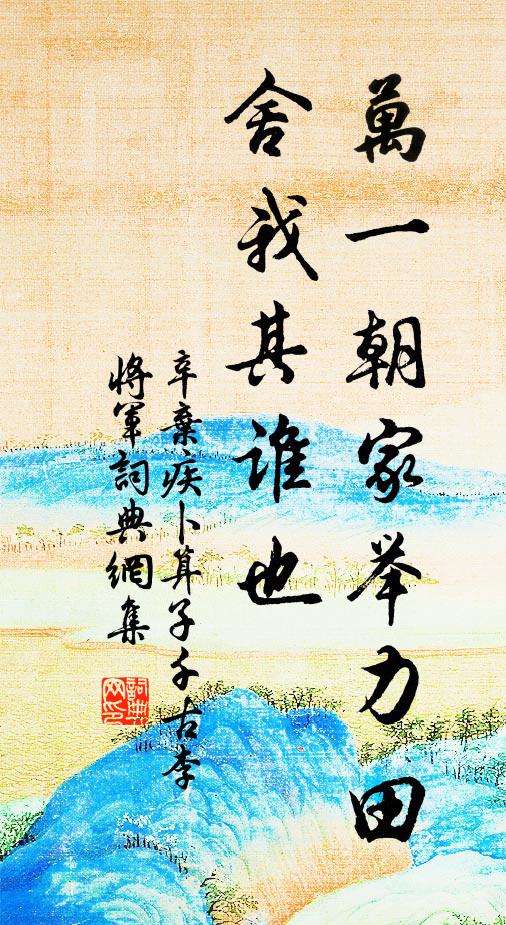 萬一朝家举力田
舍我其誰也
辛棄疾卜算子千古李
將軍詞典網集
詞典
网印